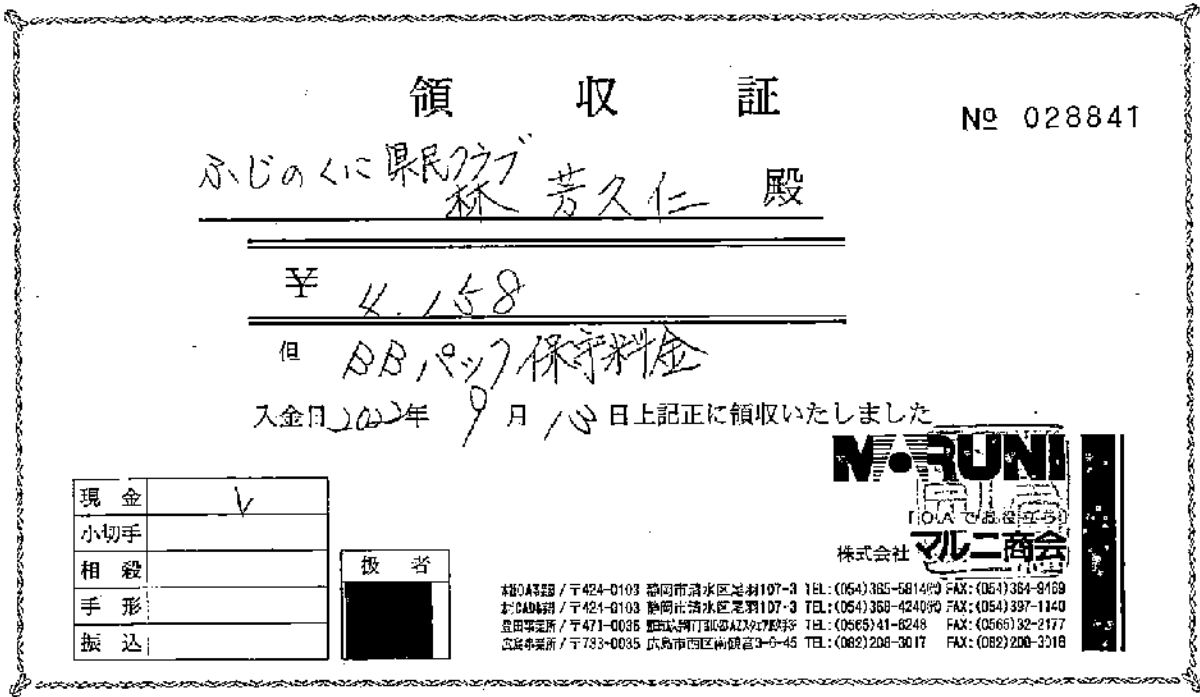 領収証
№ 028841
ふじのくに県民クラブ
林 芳久仁 殿
¥ 4.158
但 BBパック保守料金
入金日2022年 9月 13日上記正に領収いたしました
MARUNI
「OAでお役立ち」
株式会社 マルニ商会
現金 ✓
小切手
相殺
手形
振込
扱者
〒424-0103 静岡市清水区尾羽107-3 TEL:(054)365-5814㈹ FAX:(054)364-9469
〒424-0103 静岡市清水区尾羽107-3 TEL:(054)368-4240㈹ FAX:(054)397-1140
豊田事業所/〒471-0036 TEL:(0565)41-6248 FAX:(0565)32-2177
広島事業所/〒733-0035 広島市西区南観音3-6-45 TEL:(082)208-3017 FAX:(082)208-3018